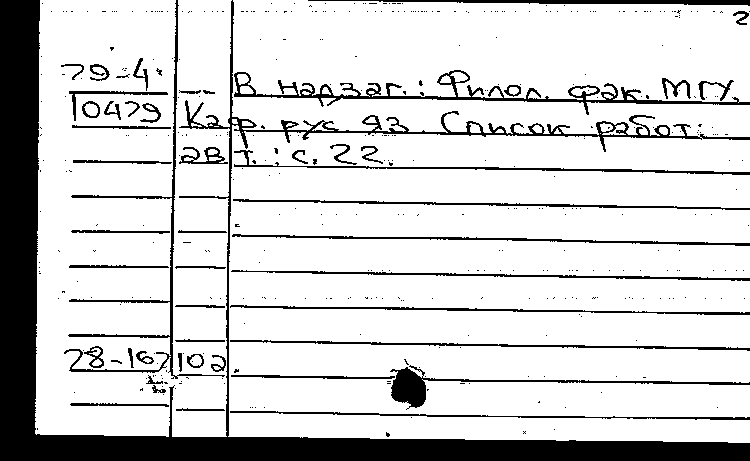 2
79-4
— В надзаг.: Филол. фак. МГУ.
10479 Каф. рус. яз. Список работ:
авт.: с. 22.
78-167102